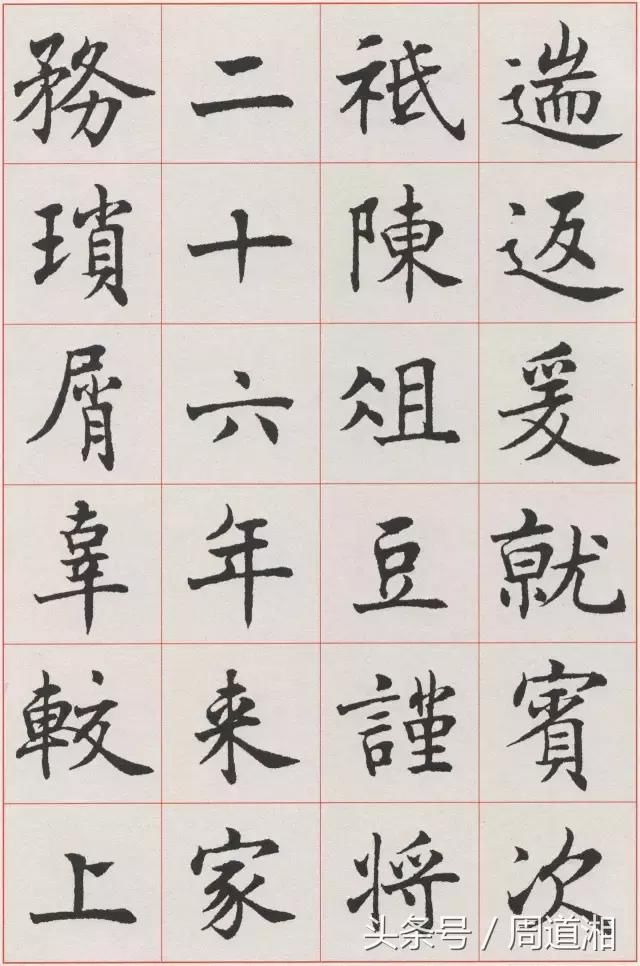 遄返爰就賓次
祗陳俎豆謹將
二十六年来家
務瑣屑辜較上
头条号 / 周道湘